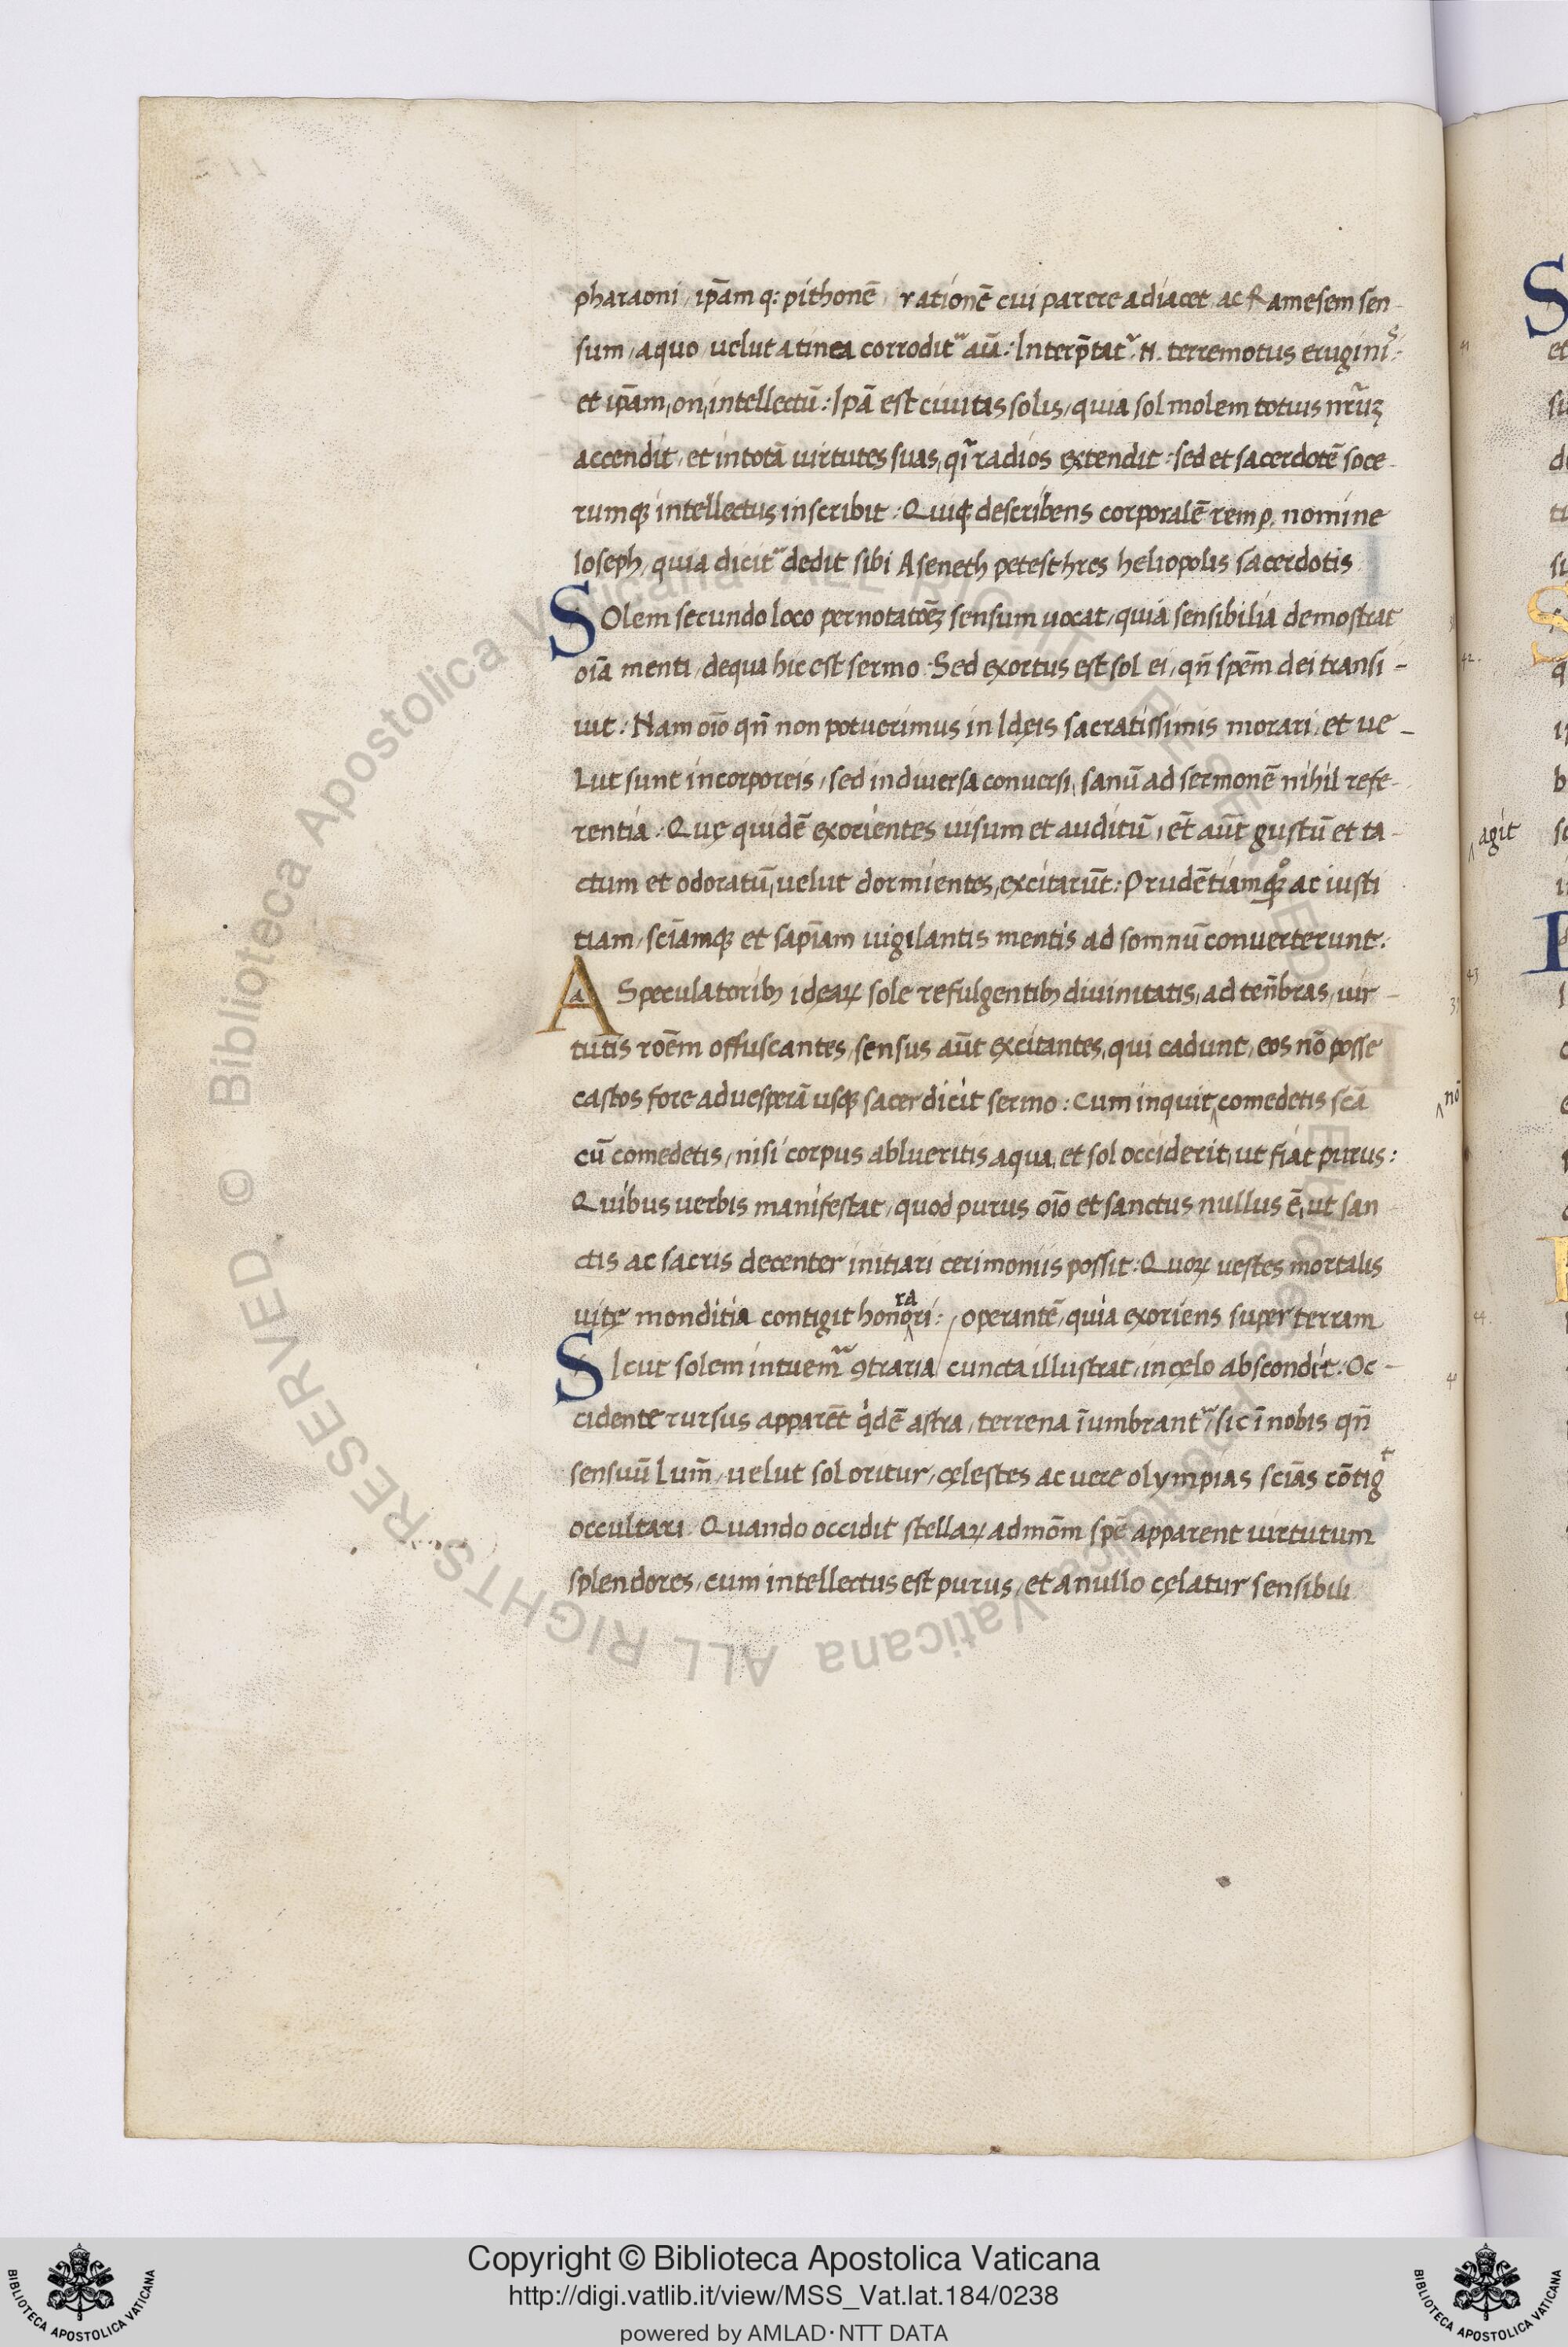 pharaoni, ip̄am q: pithonē, rationē cui parere adiacet, ac Ramesem sen-
sum, a quo uelut a tinea corrodit᷑ aīa: Interp̄tat᷑ .n. terremotus erugini᷑s:
et ip̄am, on, intellectū: Ipā est ciuitas solis, quia sol molem totius nr̄ūꝫ
accendit, et in totā uirtutes suas, qͥ radios extendit: sed et sacerdotē soce-
rumqꝫ intellectus inscribit: Quiqꝫ describens corporalē rem p. nomine
Ioseph, quia dicit᷑ dedit sibi Aseneth petesthres heliopolis sacerdotis
SOlem secundo loco per notatōeꝫ sensum uocat, quia sensibilia demostrat
oīa menti, de qua hic est sermo: Sed exortus est sol ei, qn̄ spēm dei transi-
uit: Nam oīo qn̄ non potuerimus in Idęis sacratissimis morari, et ue-
Lut sunt incorporeis, sed in diuersa conuersi, sanū ad sermonē nihil refe-
rentia: Quę quidē exorientes uisum et auditū, et̄ aūt gustū et ta-
ctum et odoratū, uelut dormientes, excitarūt: Prudētiamqꝫ ac iusti
tiam, sciāmqꝫ et sapīam uigilantis mentis ad somnū conuerterunt:
A Speculatoribꝫ ideaꝝ sole refulgentibꝫ diuinitatis, ad ten̄bras, uir-
tutis roēm offuscantes, sensus aūt excitantes, qui cadunt, eos nō posse
castos fore ad uesperā usqꝫ sacer dicit sermo: Cum inquit, comedetis scā
nō
cū comedetis, nisi corpus ablueritis aqua, et sol occiderit, ut fiat purus:
Quibus uerbis manifestat, quod purus oīo et sanctus nullus ē, ut san
ctis ac sacris decenter initiari cerimoniis possit: Quoꝝ uestes mortalis
uitę monditia contigit honorari: / operantē, quia exoriens super terram
SIcut solem intuem᷑ ꝯtraria / cuncta illustrat, in cęlo abscondit: Oc-
cidente rursus apparēt qͥdē astra, terrena īumbrant᷑, sic ī nobis qn̄
sensuū Lum̄, uelut sol oritur, cęlestes ac uere olympias sciās cōtigᵗ
occultari. Quando occidit stellaꝝ ad mōm spē apparent uirtutum
splendores, cum intellectus est purus, et a nullo cęlatur sensibili
agit
Copyright © Biblioteca Apostolica Vaticana
http://digi.vatlib.it/view/MSS_Vat.lat.184/0238
powered by AMLAD·NTT DATA
BIBLIOTECA APOSTOLICA VATICANA
BIBLIOTECA APOSTOLICA VATICANA